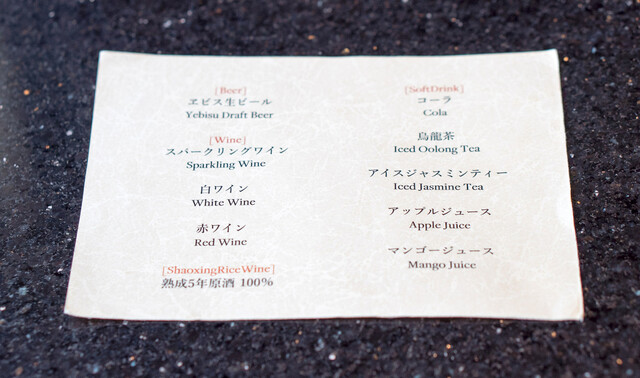 [Beer]
ヱビス生ビール
Yebisu Draft Beer
[Wine]
スパークリングワイン
Sparkling Wine
白ワイン
White Wine
赤ワイン
Red Wine
[ShaoxingRiceWine]
熟成5年原酒 100%
[SoftDrink]
コーラ
Cola
烏龍茶
Iced Oolong Tea
アイスジャスミンティー
Iced Jasmine Tea
アップルジュース
Apple Juice
マンゴージュース
Mango Juice